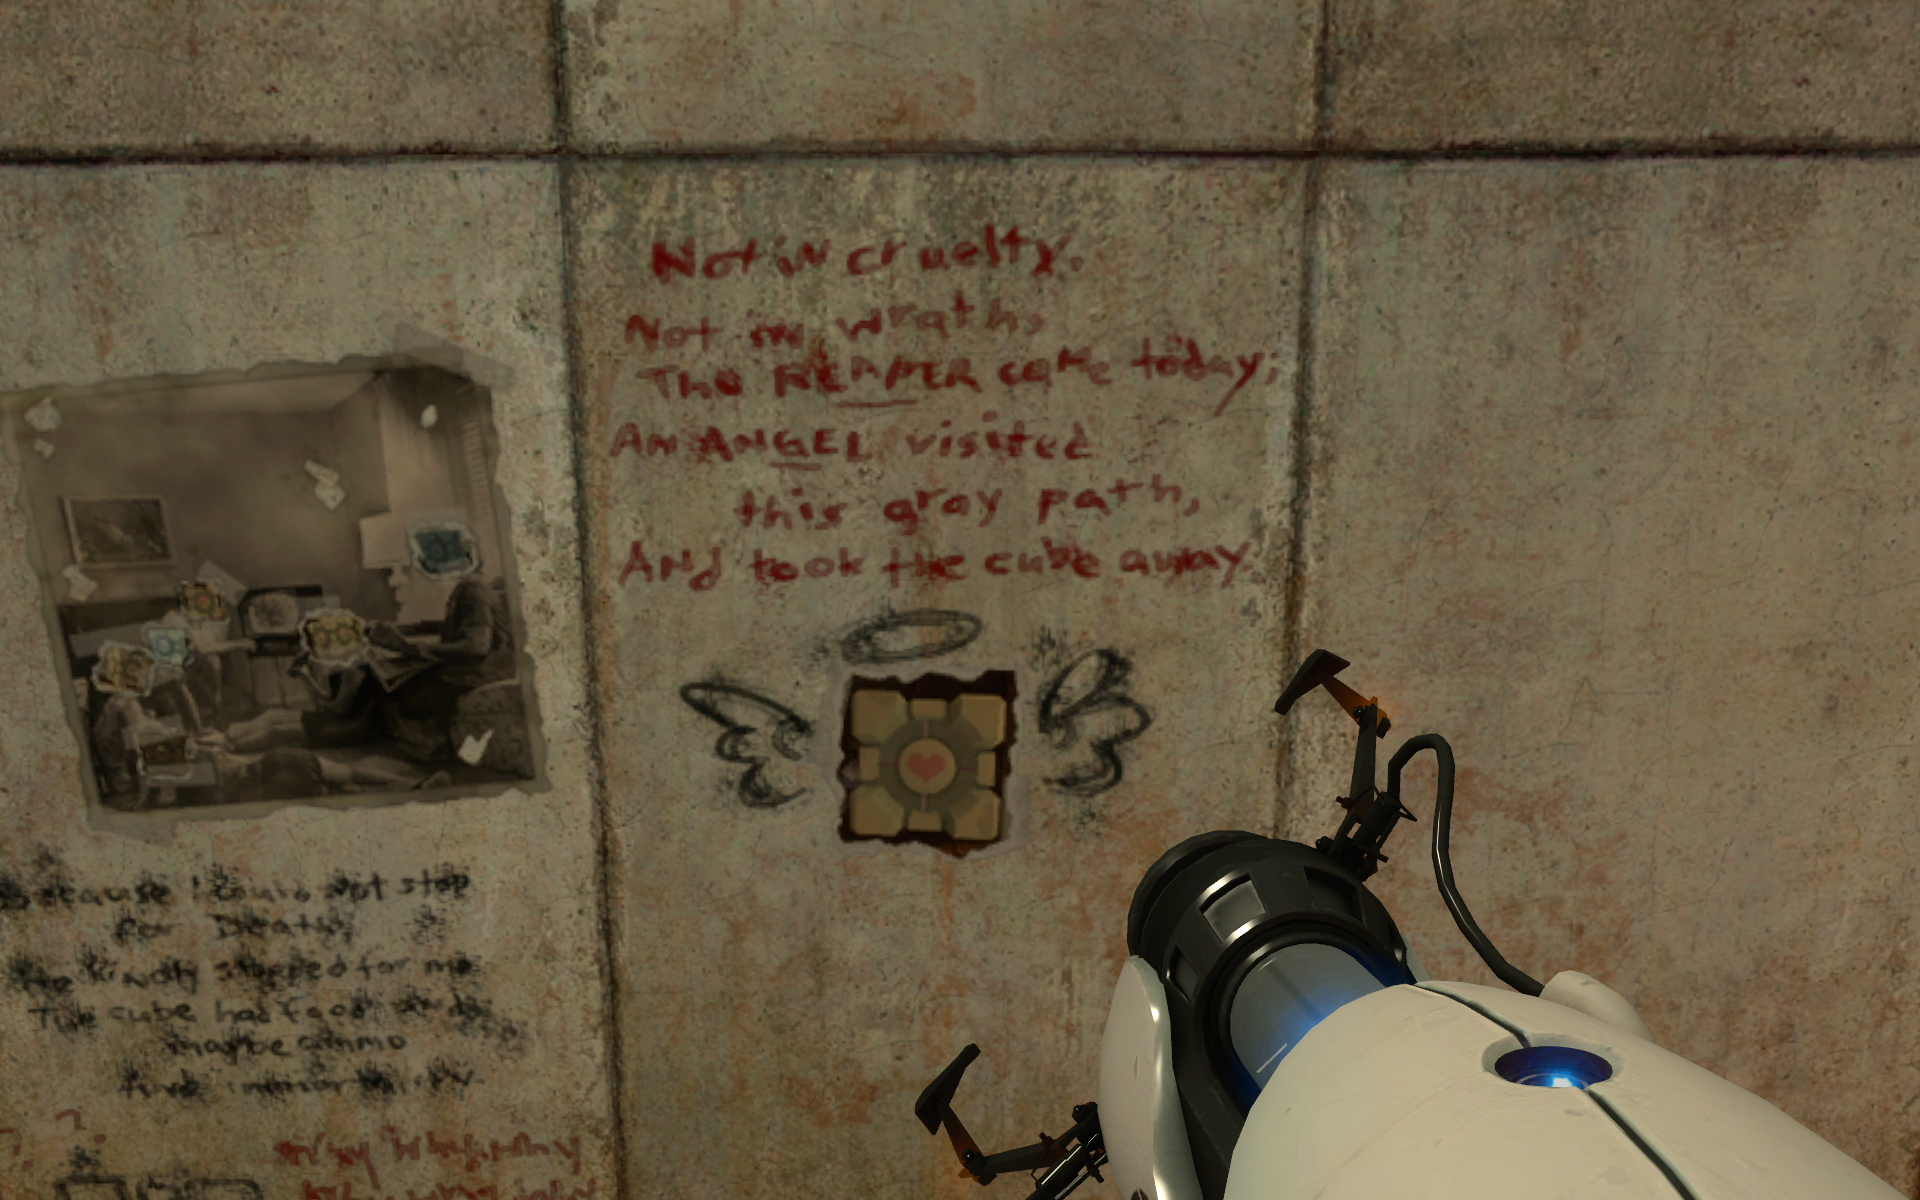 Not in cruelty,
Not in wrath,
The REAPER came today;
AN ANGEL visited
this gray path,
And took the cube away.
Because I could not stop
for Death,
He kindly stopped for me
The cube had food and
maybe ammo
And immortality
why why why